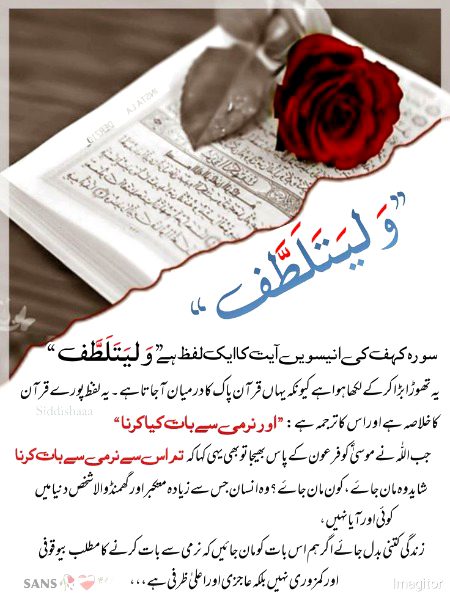 ”وَلیَتَلَطَّف“
سورہ کہف کی انیسویں آیت کا ایک لفظ ہے ”وَلیَتَلَطَّف“
یہ تھوڑا بڑا کر کے لکھا ہوا ہے کیونکہ یہاں قرآن پاک کا درمیان آ جاتا ہے۔ یہ لفظ پورے قرآن
کا خلاصہ ہے اور اس کا ترجمہ ہے: ”اور نرمی سے بات کیا کرنا“
Siddishaaa
جب اللہ نے موسیٰؑ کو فرعون کے پاس بھیجا تو بھی یہی کہا کہ تم اس سے نرمی سے بات کرنا
شاید وہ مان جائے، کون مان جائے؟ وہ انسان جس سے زیادہ متکبر اور گھمنڈ والا شخص دنیا میں
کوئی اور آیا نہیں،
زندگی کتنی بدل جائے اگر ہم اس بات کو مان جائیں کہ نرمی سے بات کرنے کا مطلب بیوقوفی
اور کمزوری نہیں بلکہ عاجزی اور اعلیٰ ظرفی ہے،،،
SANS
Imagitor